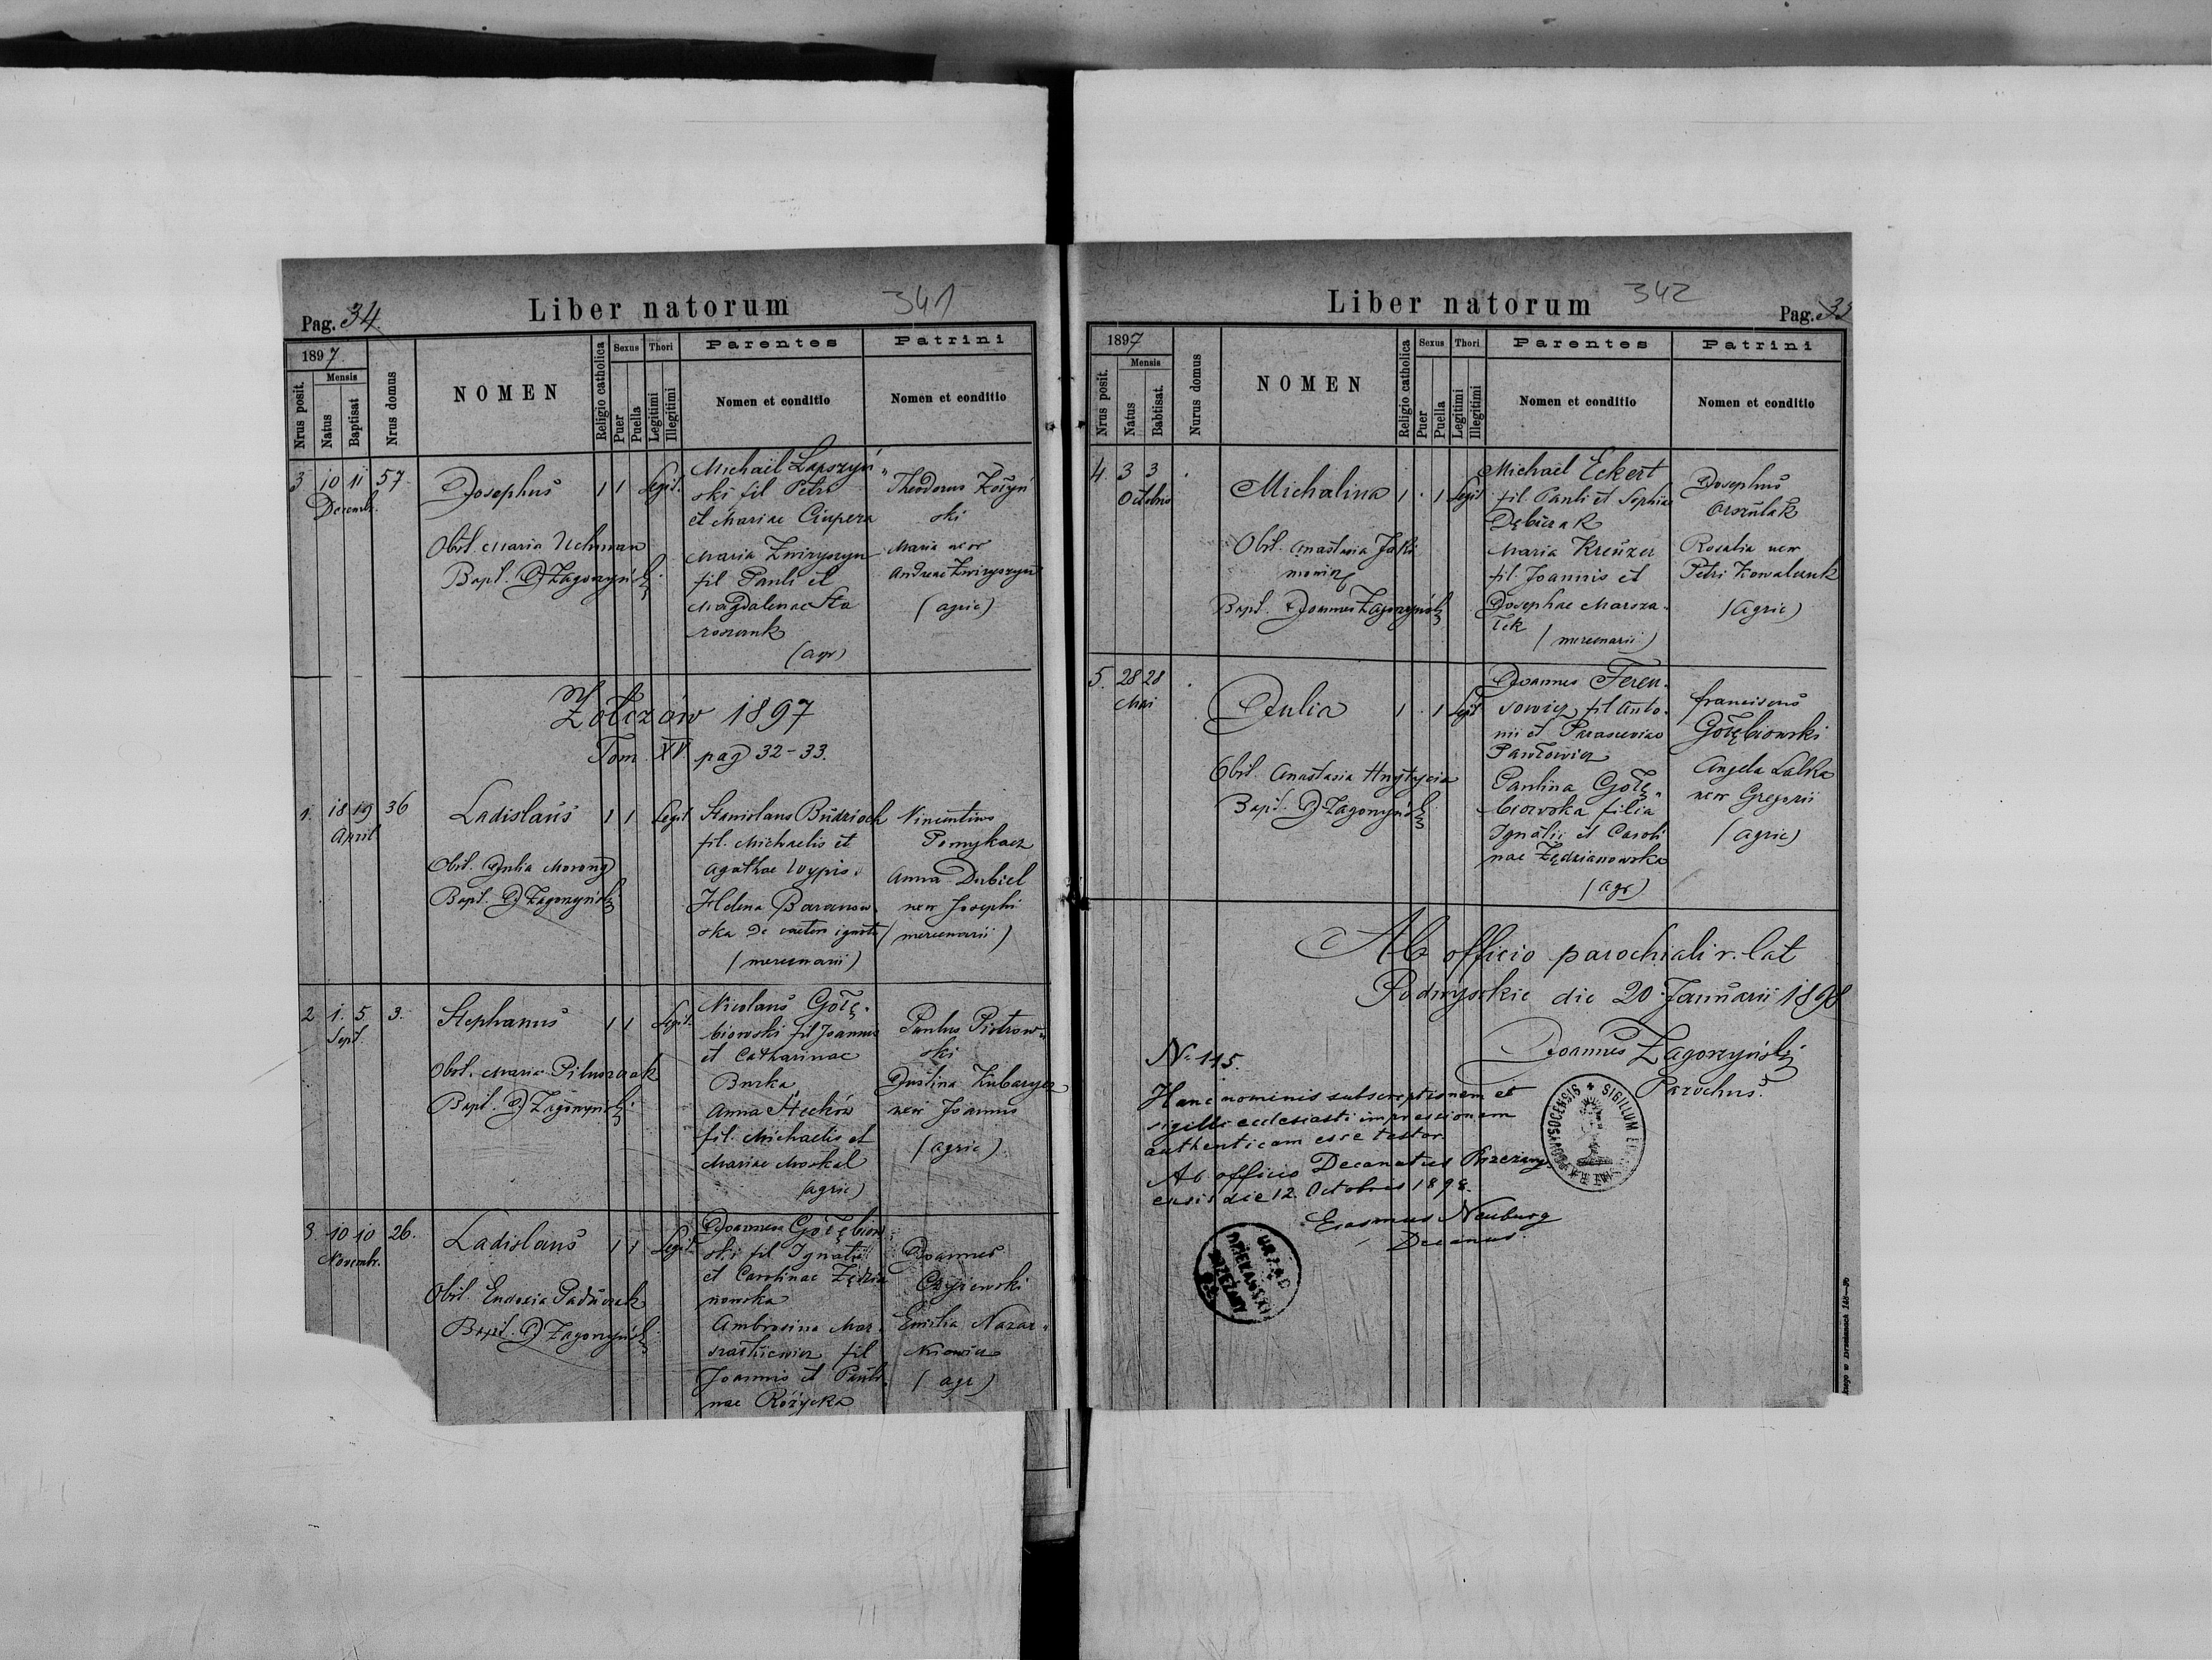 Pag. 34.
Liber natorum
341
1897.
Nrus posit.
Mensis
Natus
Baptisat
Nrus domus
NOMEN
Religio catholica
Sexus
Puer
Puella
Thori
Legitimi
Illegitimi
Parentes
Nomen et conditio
Patrini
Nomen et conditio
3 10 11 57
Decemb.
Josephus 1 1 Legit.
Obst. Maria Uchman
Bapt. J Zagórzyński
Michaël Lapszyń
ski fil Petri
et Mariae Ciupera
Maria Zwiryszyn
fil Pauli et
Magdalenae Sta
roszczuk
(agr)
Theodorus Kożyń
ski
Maria uxor
Andreae Zwiryszyn
(agric)
Żołczów 1897
Tom XV pag 32-33.
1. 18 19 36
April
Ladislaus 1 1 Legit
Obst. Julia Morong
Bapt. J Zagórzyński
Stanislaus Budzioch
fil. Michaelis et
Agathae Wypis.
Helena Baranow
ska de caetero ignota
(mercenarii)
Vincentius
Pomykacz
Anna Dubiel
uxor Josephi
(mercenarii)
2 1. 5. 3.
Sept.
Stephanus 1 1 Legit.
Obst. Maria Piluszczak
Bapt. J Zagórzyński
Nicolaus Gołę-
biowski fil Joannis
et Catharinae
Burka
Anna Steców
fil. Michaelis et
Mariae Moskal
(agric)
Paulus Piotrow-
ski
Justina Kubarycz
uxor Joannis
(agric)
3. 10 10 26.
Novembr.
Ladislaus 1 1 Legit.
Obst. Eudoxia Paduczak
Bapt. J Zagórzyński
Joannes Gołębiow
ski fil Ignatii
et Carolinae Zędzia
nowska
Ambrosina Mar-
szałkiewicz fil
Joannis et Pauli-
nae Różycka
Joannes
Czyżewski
Emilia Nazar-
kiewicz
(agr)
Liber natorum
342
Pag. 35
1897
Nrus posit.
Mensis
Natus
Babtisat.
Nurus domus
NOMEN
Religio catholica
Sexus
Puer
Puella
Thori
Legitimi
Illegitimi
Parentes
Nomen et conditio
Patrini
Nomen et conditio
4. 3 3 .
Octobris
Michalina 1 . 1 Legit
Obst. Anastasia Jaki
mowicz
Bapt. Joannes Zagórzyński
Michael Eckert
fil. Pauli et Sophiae
Dębiczak
Maria Kreuzer
fil. Joannis et
Josephae Marsza-
łek
(mercenarii)
Josephus
Orszulak
Rosalia uxor
Petri Kowalczuk
(Agric)
5. 28 28 .
Mai
Julia 1 . 1 Legit
Obst. Anastasia Hnytycia
Bapt. J Zagórzyński
Joannes Feren-
sowicz fil Anto-
nii et Parasceviae
Pawłowicz
Paulina Gołę-
biowska filia
Ignatii et Caroli
nae Zędzianowska
(agr)
Franciscus
Gołębiowski
Angela Lalka
uxor Gregorii
(agric)
Ab officio parochiali r. lat
Podwysokie die 20 Januarii 1898
Joannes Zagórzyński
Parochus.
No 115.
Hanc nominis subscriptionem et
sigilli ecclesiasti impressionem
authenticam esse testor.
Ab officio Decanatus Brzeżany-
ensis die 12. Octobris 1898.
Erasmus Neuburg
Decanus.
SIGILLUM
URZĄD
DZIEKAŃSKI
BRZEŻANY